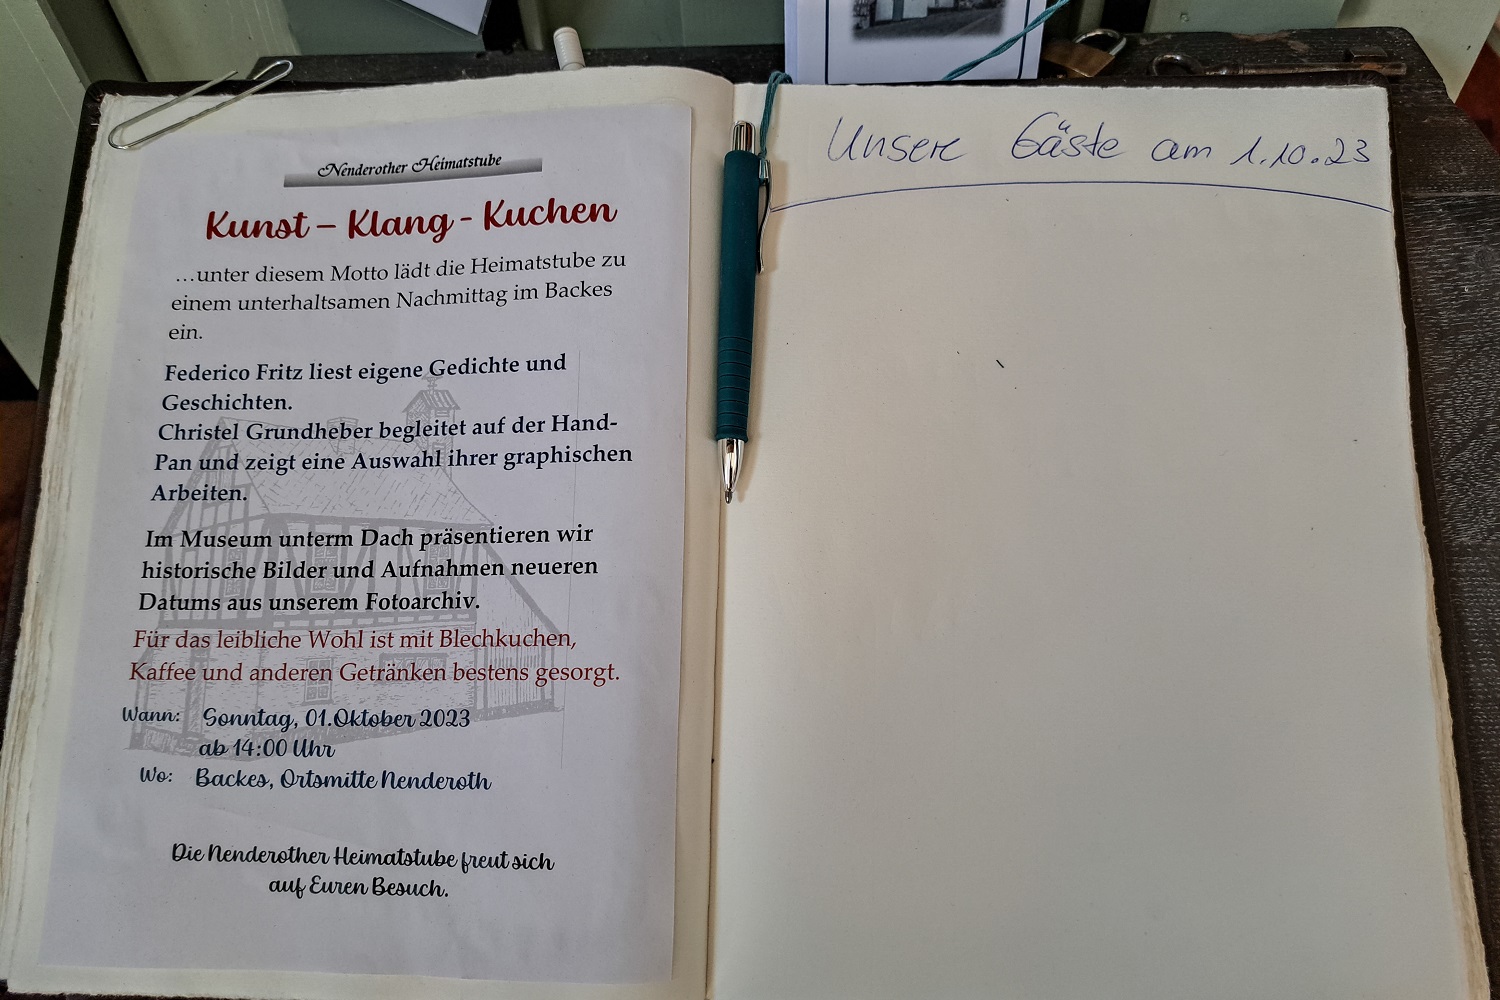 Nenderother Heimatstube
Kunst – Klang - Kuchen
...unter diesem Motto lädt die Heimatstube zu
einem unterhaltsamen Nachmittag im Backes
ein.
Federico Fritz liest eigene Gedichte und
Geschichten.
Christel Grundheber begleitet auf der Hand-
Pan und zeigt eine Auswahl ihrer graphischen
Arbeiten.
Im Museum unterm Dach präsentieren wir
historische Bilder und Aufnahmen neueren
Datums aus unserem Fotoarchiv.
Für das leibliche Wohl ist mit Blechkuchen,
Kaffee und anderen Getränken bestens gesorgt.
Wann: Sonntag, 01.Oktober 2023
ab 14:00 Uhr
Wo: Backes, Ortsmitte Nenderoth
Die Nenderother Heimatstube freut sich
auf Euren Besuch.
Unsere Gäste am 1.10.23